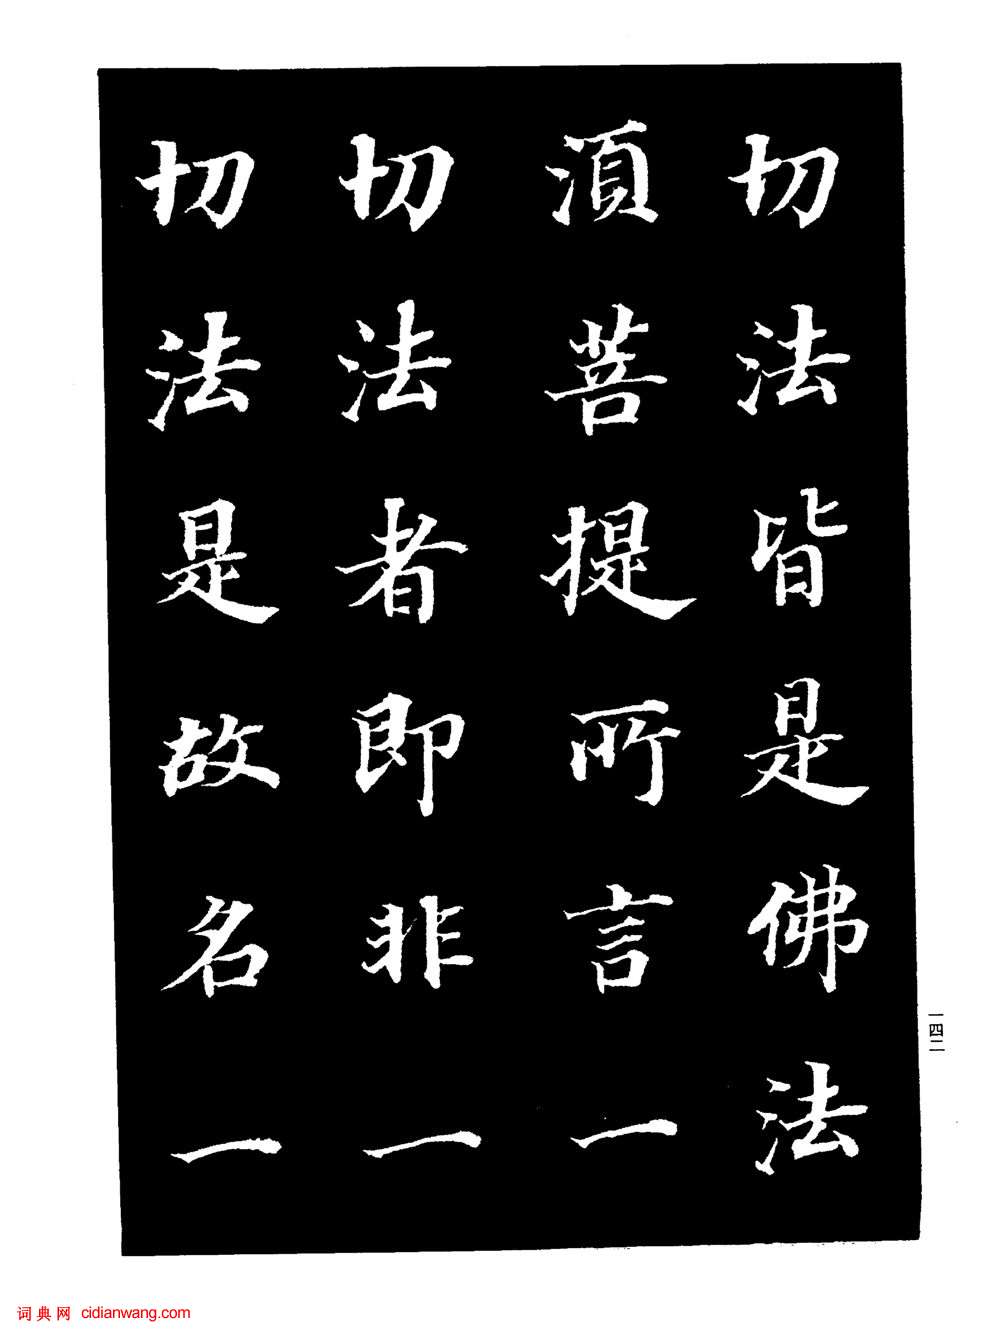 切法皆是佛法
湏菩提所言一
切法者即非一
切法是故名一
一四二
词典网 cidianwang.com